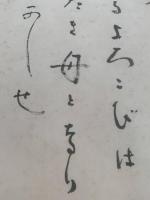 るよろこびは
たき母となり
かしせ